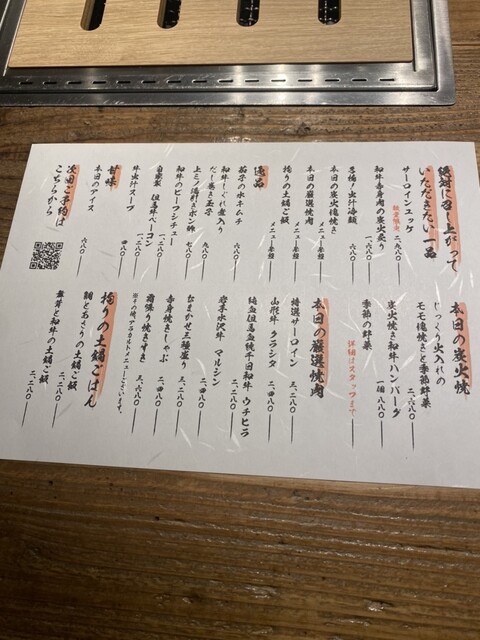 絶対に召し上がって
いただきたい一品
サーロインユッケ
数量限定 二、九八〇
和牛赤身肉の炭火炙り 一、六八〇
本日の炭火塊焼き メニュー裏面
本日の厳選焼肉 メニュー裏面
拘りの土鍋ご飯 メニュー裏面
逸品
茄子の水キムチ 六八〇
和牛しぐれ煮入り
だし巻き玉子 九八〇
上ミノ湯引きポン酢 七八〇
和牛のビーフシチュー 一、二八〇
自家製 但馬牛ベーコン 一、二八〇
牛出汁スープ 四八〇
甘味
本日のアイス 六八〇
次回ご予約は
こちらから
本日の炭火焼
じっくり火入れの
モモ塊焼きと季節野菜 二、六八〇
炭火焼き和牛ハンバーグ 一個 八八〇
季節の野菜 詳細はスタッフまで
本日の厳選焼肉
特選サーロイン 三、二八〇
山形牛 クラシタ 二、四八〇
純血但馬血統千日和牛 ウチヒラ 二、二八〇
岩手水沢牛 マルシン 二、四八〇
おまかせ三種盛り 三、二八〇
赤身焼きしゃぶ 二、四八〇
霜降り焼きすき 三、六八〇
拘りの土鍋ごはん
鯛とあさりの土鍋ご飯 二、二八〇
舞茸と和牛の土鍋ご飯 二、二八〇